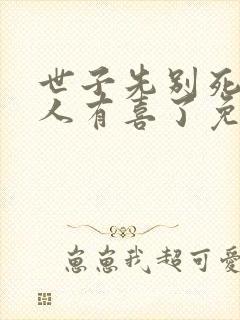 世子先别死
人有喜了免
崽崽我超可爱